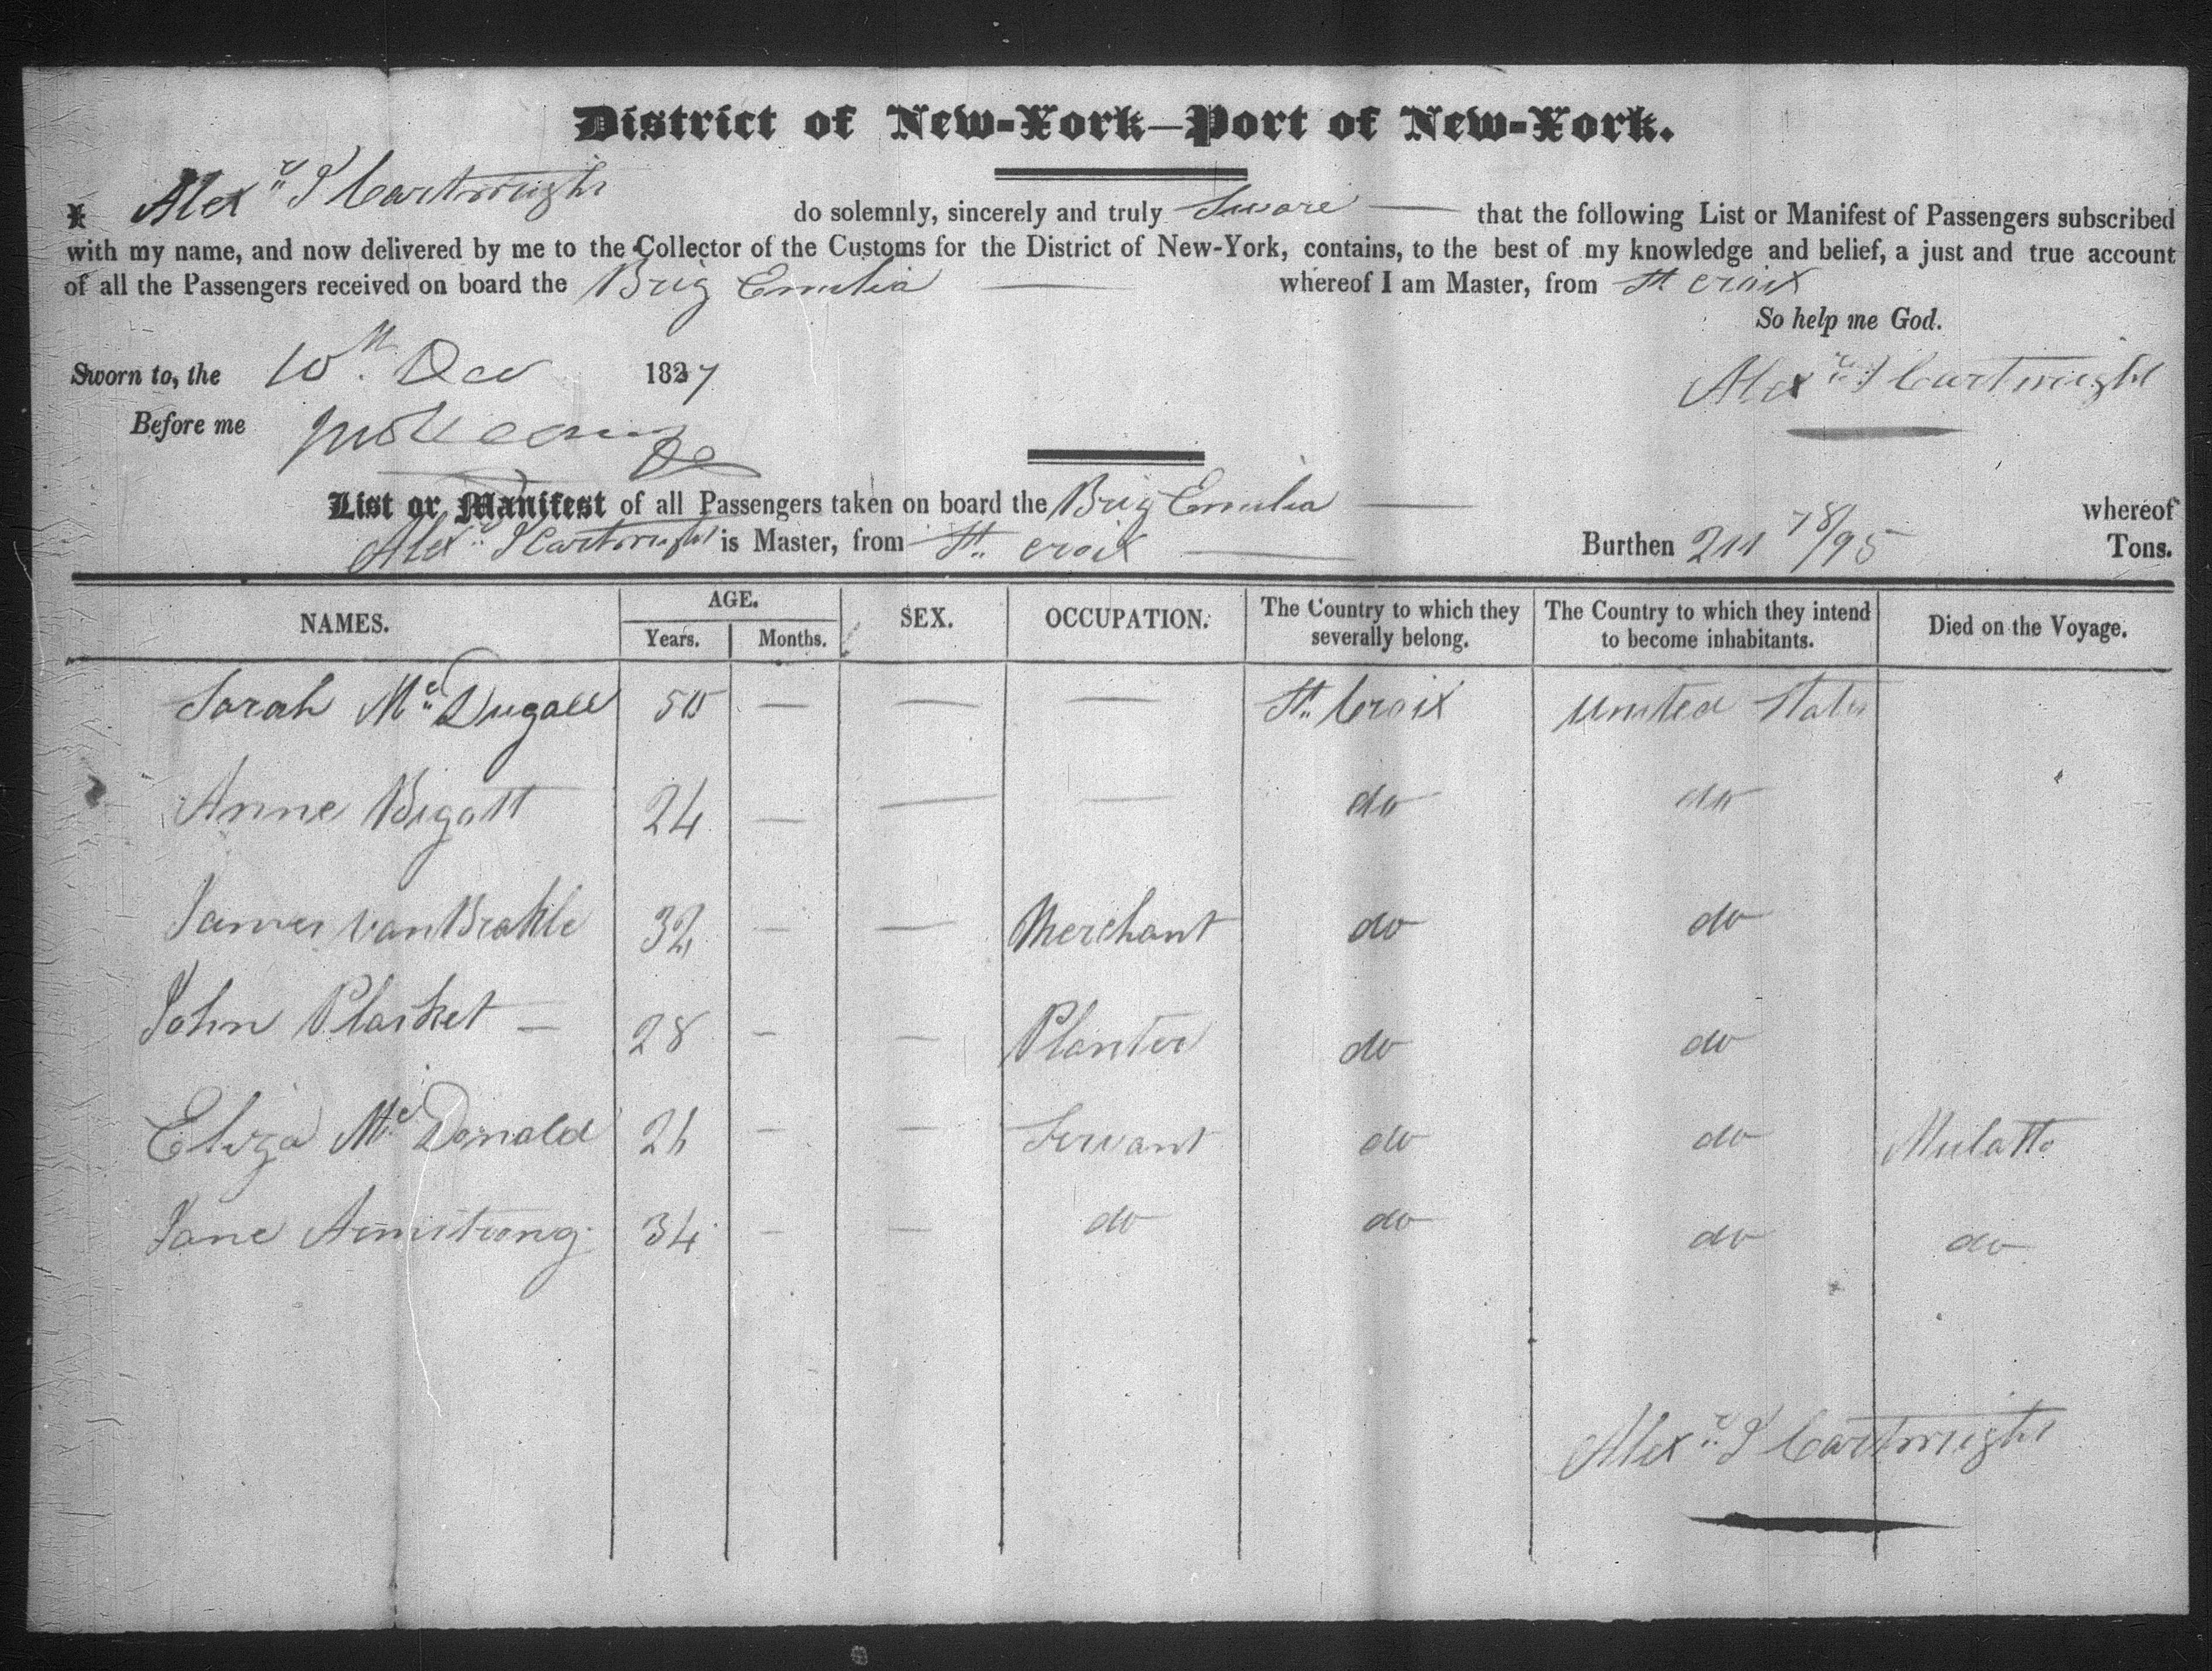 District of New-York—Port of New-York.
I Alexr J Cartwright do solemnly, sincerely and truly Sware — that the following List or Manifest of Passengers subscribed
with my name, and now delivered by me to the Collector of the Customs for the District of New-York, contains, to the best of my knowledge and belief, a just and true account
of all the Passengers received on board the Brig Emelia — whereof I am Master, from St. Croix
So help me God.
Sworn to, the 10th. Dec 1827
Alexr J Cartwright
Before me
List or Manifest of all Passengers taken on board the Brig Emelia — whereof
Alexr J Cartwright is Master, from St. Croix — Burthen 211 78/95 Tons.
NAMES. AGE. Years. Months. SEX. OCCUPATION. The Country to which they severally belong. The Country to which they intend to become inhabitants. Died on the Voyage.
Sarah Mc Dugall 50 — — — St. Croix United States
Anne Bigott 24 — — — do do
James van Brakle 32 — — Merchant do do
John Plasket — 28 — — Planter do do
Eliza Mc Donald 26 — — Servant do do Mulatto
Jane Armstrong 34 — — do do do do
Alexr J Cartwright